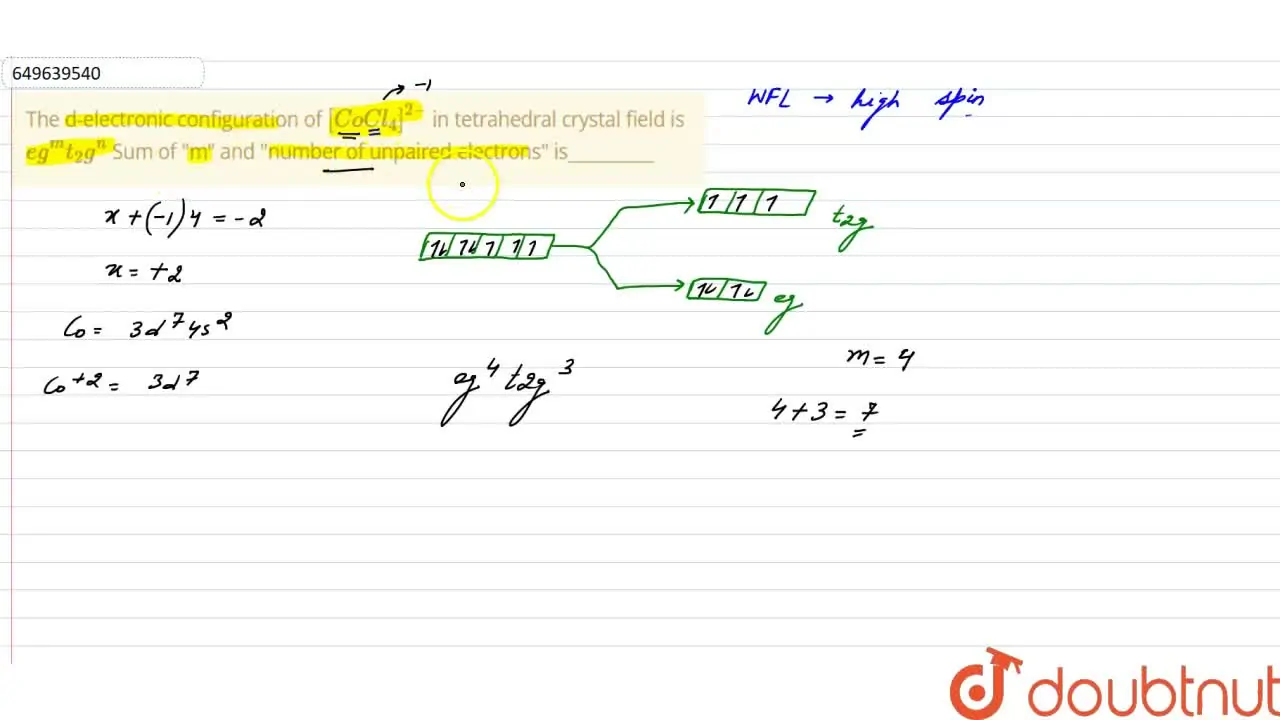 649639540
The d-electronic configuration of [CoCl₄]²⁻ in tetrahedral crystal field is
egᵐt₂gⁿ Sum of "m" and "number of unpaired electrons" is________
→ -1
WFL → high spin
x + (-1) 4 = -2
x = +2
Co = 3d⁷ 4s²
Co⁺² = 3d⁷
1L 1L 1 1 1
1 1 1
t2g
1L 1L
eg
eg⁴ t2g³
m = 4
4 + 3 = 7
doubtnut